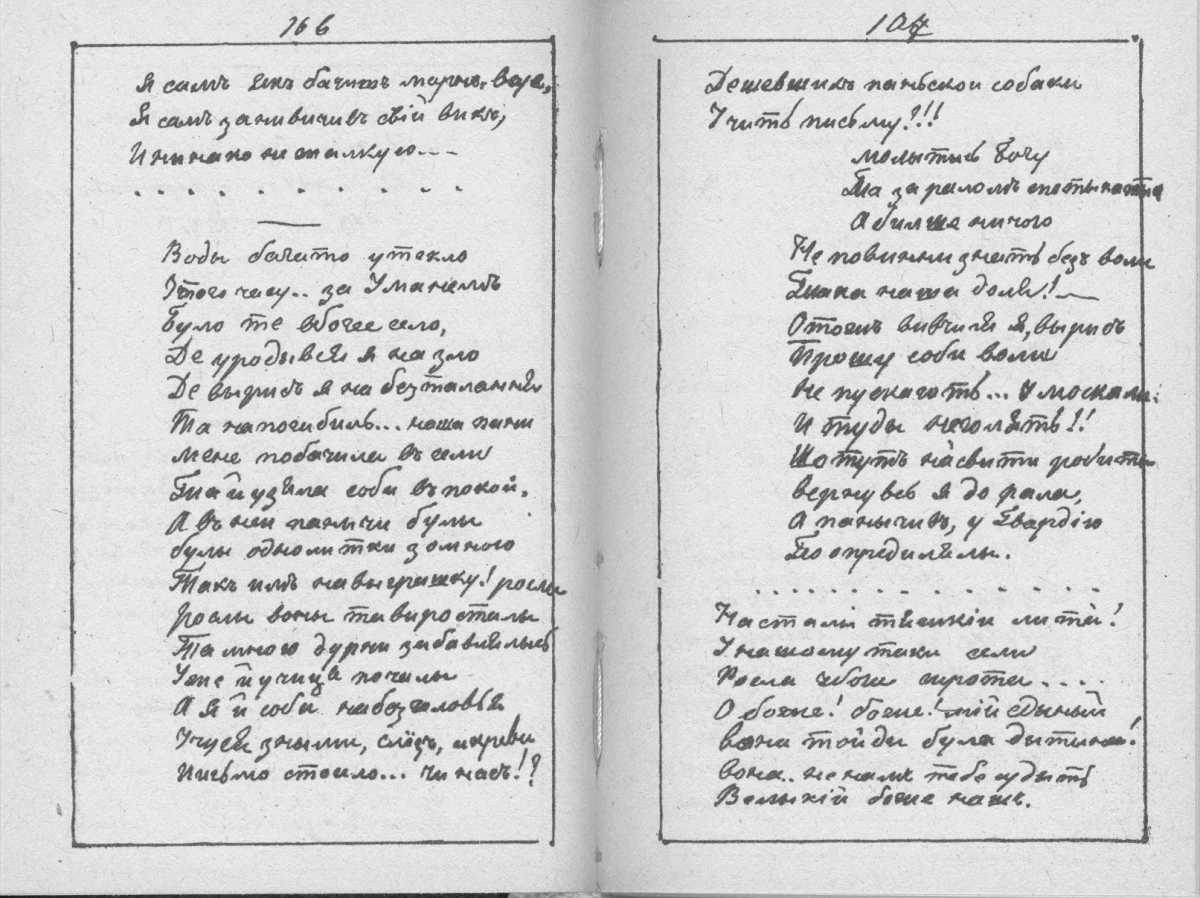 166
Я самъ якъ бачить марнѣ, ... 
Я самъ занивичивъ свій викъ,
И никако не толкую...
Воды багато утекло
Зтого часу.. за Уманемъ
Було те вбогее село,
Де уродывся я на зло
Де вырисъ я на безталання
Та на погибиль... наша пани
Мене побачила въ сели
Та й узяла соби въ покой.
А въ неи панычи булы
булы однолитки зомною
Такъ имъ на выграшку! рослы
рослы воны та виросталы
Та мною дурни забавлялысь
Уже й учиця почалы
А я й соби на безголовья
Учуся зными, слёзъ, икрови
Письмо стоило... чи насъ!?
107
Дешевшихъ панськои собаки
Учить письму?!!
молытись Богу
Та за раломъ спотыкатися
А билше ничого
Не повинни знать безъ воли
Така наша доля!—
Отожъ вивчився я, вырисъ
Прошу соби воли
Не пускають... У москали
И туды неголять!!
Що тутъ насвити робити
вернувсь я до рала,
А панычивъ, у Гвардію
Поопредилялы.
Насталі тяжкіи лита!
У нашому таки сели
Росла вбога сирота....
О боже! боже! мій єдиный
вона тойди була дитина!
вона.. не намъ тебе судыть
Велыкій боже нашъ.